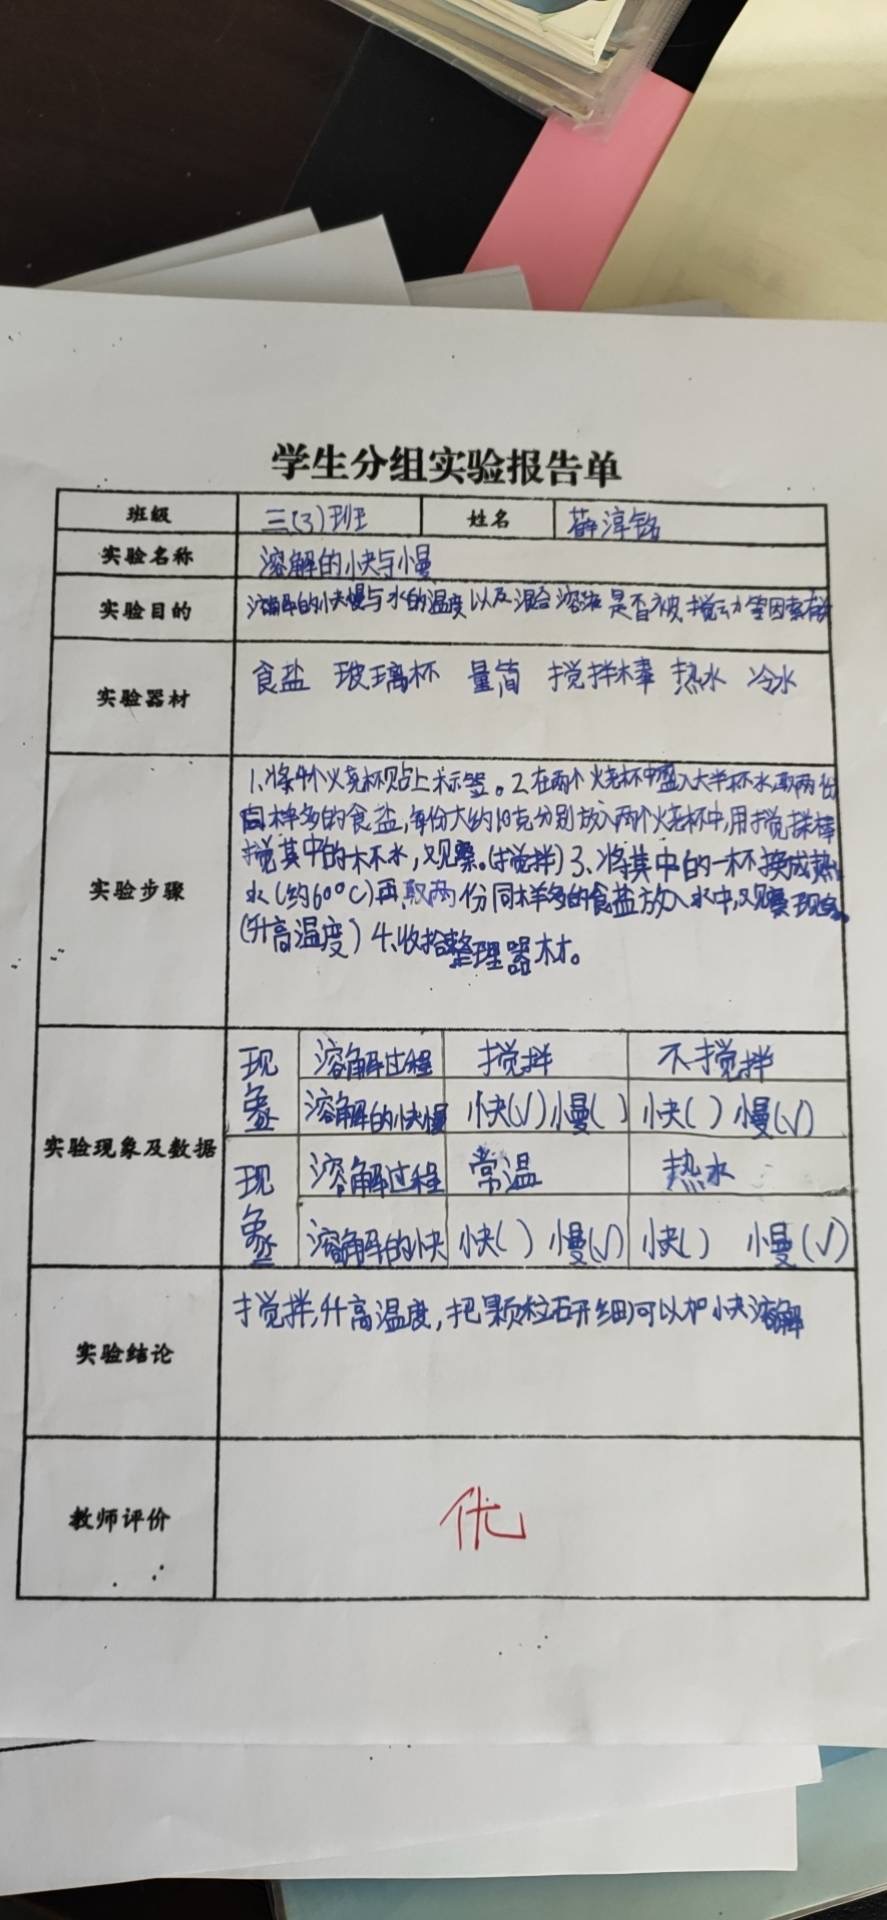 学生分组实验报告单
班级 三(3)班 姓名 薛淳铭
实验名称 溶解的快与慢
实验目的 溶解的快慢与水的温度以及混合溶液是否被搅动等因素有关
实验器材 食盐 玻璃杯 量筒 搅拌棒 热水 冷水
实验步骤
1、将4个烧杯贴上标签。2、在两个烧杯中盛入大半杯水,取两份
同样多的食盐,每份大约10克分别放入两个烧杯中,用搅拌棒
搅其中的一杯水,观察。(搅拌)3、将其中的一杯换成热
水(约60°C)再取两份同样多的食盐放入水中,观察现象。
(升高温度)4、收拾整理器材。
实验现象及数据
现象 溶解过程 搅拌 不搅拌
溶解的快慢 快(√)慢( ) 快( )慢(√)
现象 溶解过程 常温 热水
溶解的快 快( ) 慢(√) 快( ) 慢(√)
实验结论 搅拌,升高温度,把颗粒研细可以加快溶解
教师评价 优